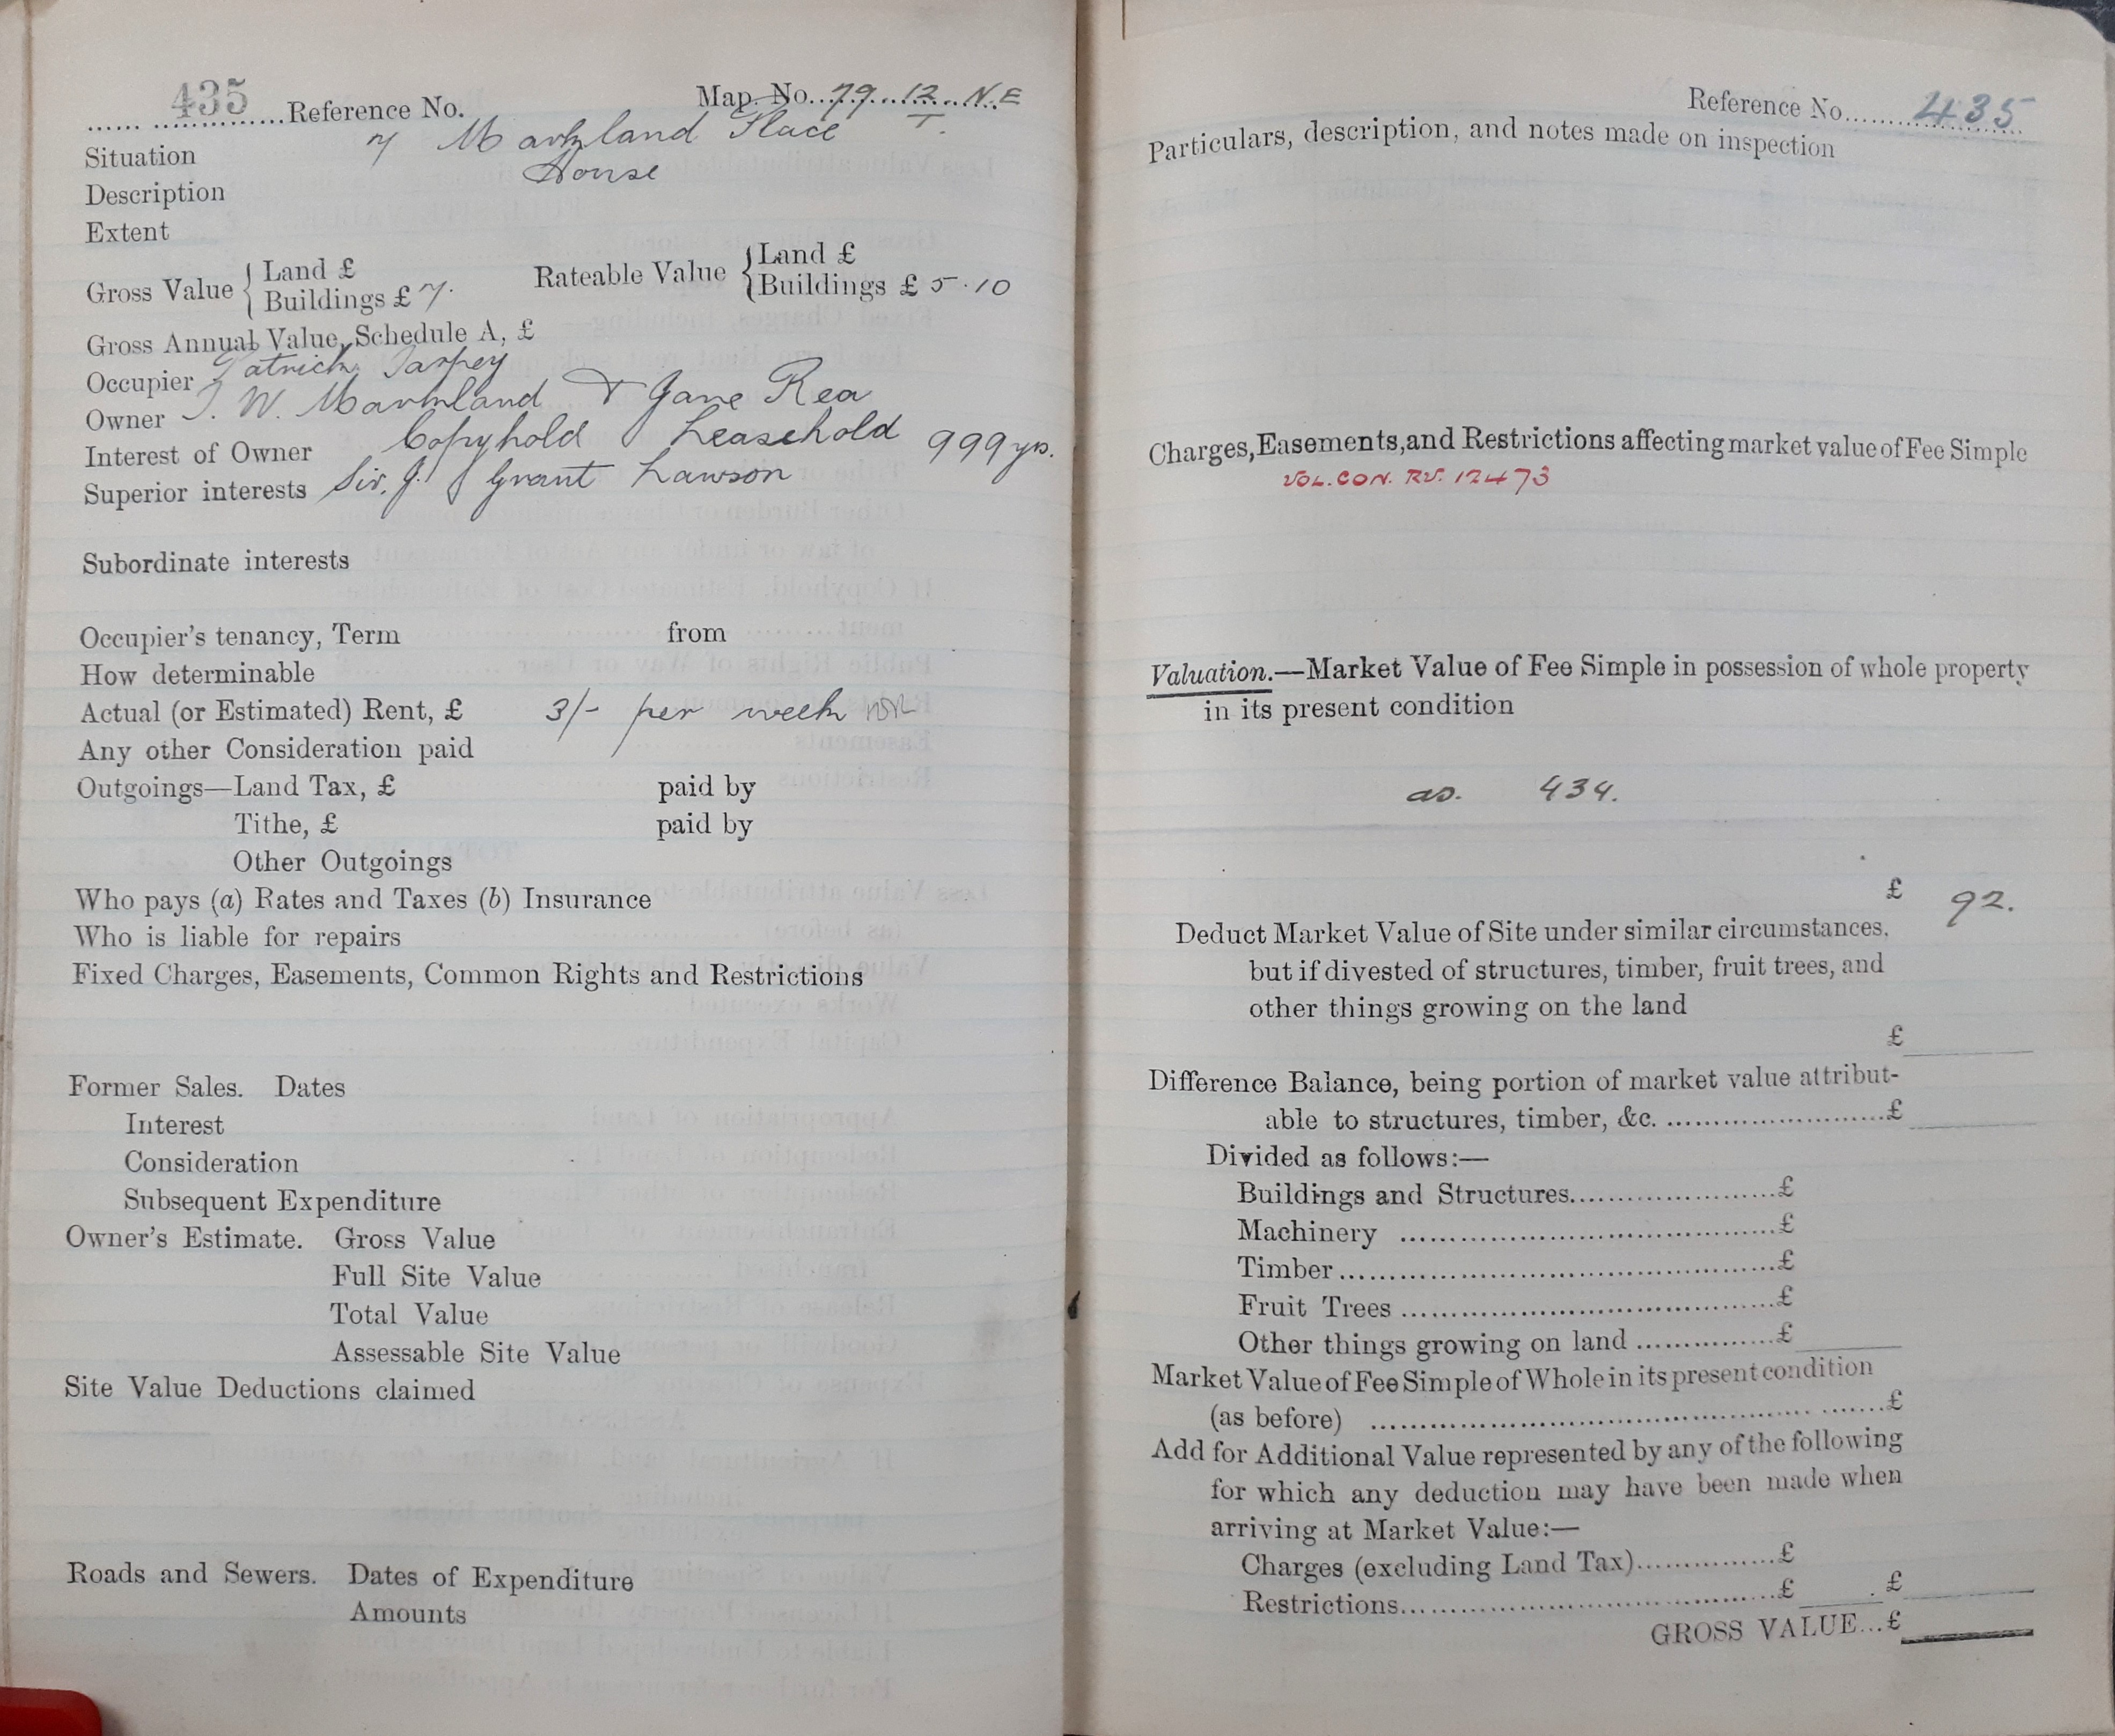 435 Reference No. Map. No. 79. 12. N.E
T.
Situation 7 Markland Place
Description House
Extent
Gross Value { Land £
Buildings £ 7. Rateable Value { Land £
Buildings £ 5.10
Gross Annual Value, Schedule A, £
Occupier Patrick Tarpey
Owner J. W. Markland & Jane Rea
Interest of Owner Copyhold Leasehold 999 yrs.
Superior interests Sir. J. Grant Lawson
Subordinate interests
Occupier's tenancy, Term from
How determinable
Actual (or Estimated) Rent, £ 3/- per week
Any other Consideration paid
Outgoings—Land Tax, £ paid by
Tithe, £ paid by
Other Outgoings
Who pays (a) Rates and Taxes (b) Insurance
Who is liable for repairs
Fixed Charges, Easements, Common Rights and Restrictions
Former Sales. Dates
Interest
Consideration
Subsequent Expenditure
Owner's Estimate. Gross Value
Full Site Value
Total Value
Assessable Site Value
Site Value Deductions claimed
Roads and Sewers. Dates of Expenditure
Amounts
Reference No. 435
Particulars, description, and notes made on inspection
Charges, Easements, and Restrictions affecting market value of Fee Simple
VOL. CON. RV. 12473
Valuation.—Market Value of Fee Simple in possession of whole property
in its present condition
as. 434.
£ 92.
Deduct Market Value of Site under similar circumstances,
but if divested of structures, timber, fruit trees, and
other things growing on the land
£
Difference Balance, being portion of market value attribut-
able to structures, timber, &c. £
Divided as follows:—
Buildings and Structures £
Machinery £
Timber £
Fruit Trees £
Other things growing on land £
Market Value of Fee Simple of Whole in its present condition
(as before) £
Add for Additional Value represented by any of the following
for which any deduction may have been made when
arriving at Market Value:—
Charges (excluding Land Tax) £
Restrictions £ £
GROSS VALUE... £